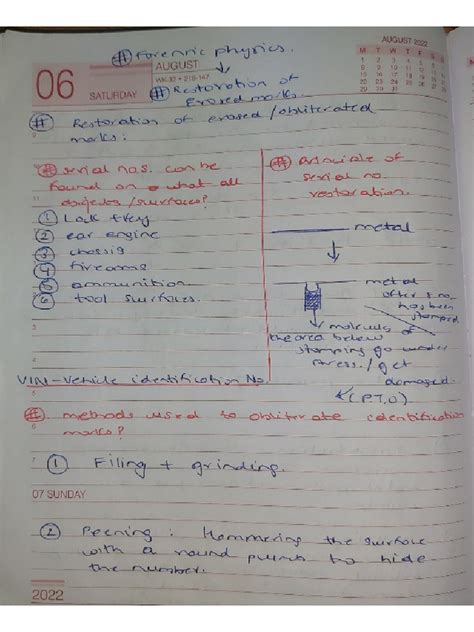 # Forensic physics.
AUGUST 2022
M T W T F S S
06
SATURDAY
AUGUST
WK-32 • 218-147
# Restoration of
Erased marks.
# Restoration of erased/obliterated
marks:
# serial nos. can be
found on what all
objects/surfaces?
① Lock + key
② car engine
③ chassis
④ firearms
⑤ ammunition
⑥ tool surfaces.
# Principle of
serial no.
restoration.
metal
metal
after s no.
has been
stamped
molecules of
the area below
stamping go under
press./get
damaged.
(P.T.O)
VIN - Vehicle identification No.
# methods used to obliterate identification
marks?
① Filing + grinding.
07 SUNDAY
② Peening: Hammering the surface
with a round punch to hide
the number.
2022